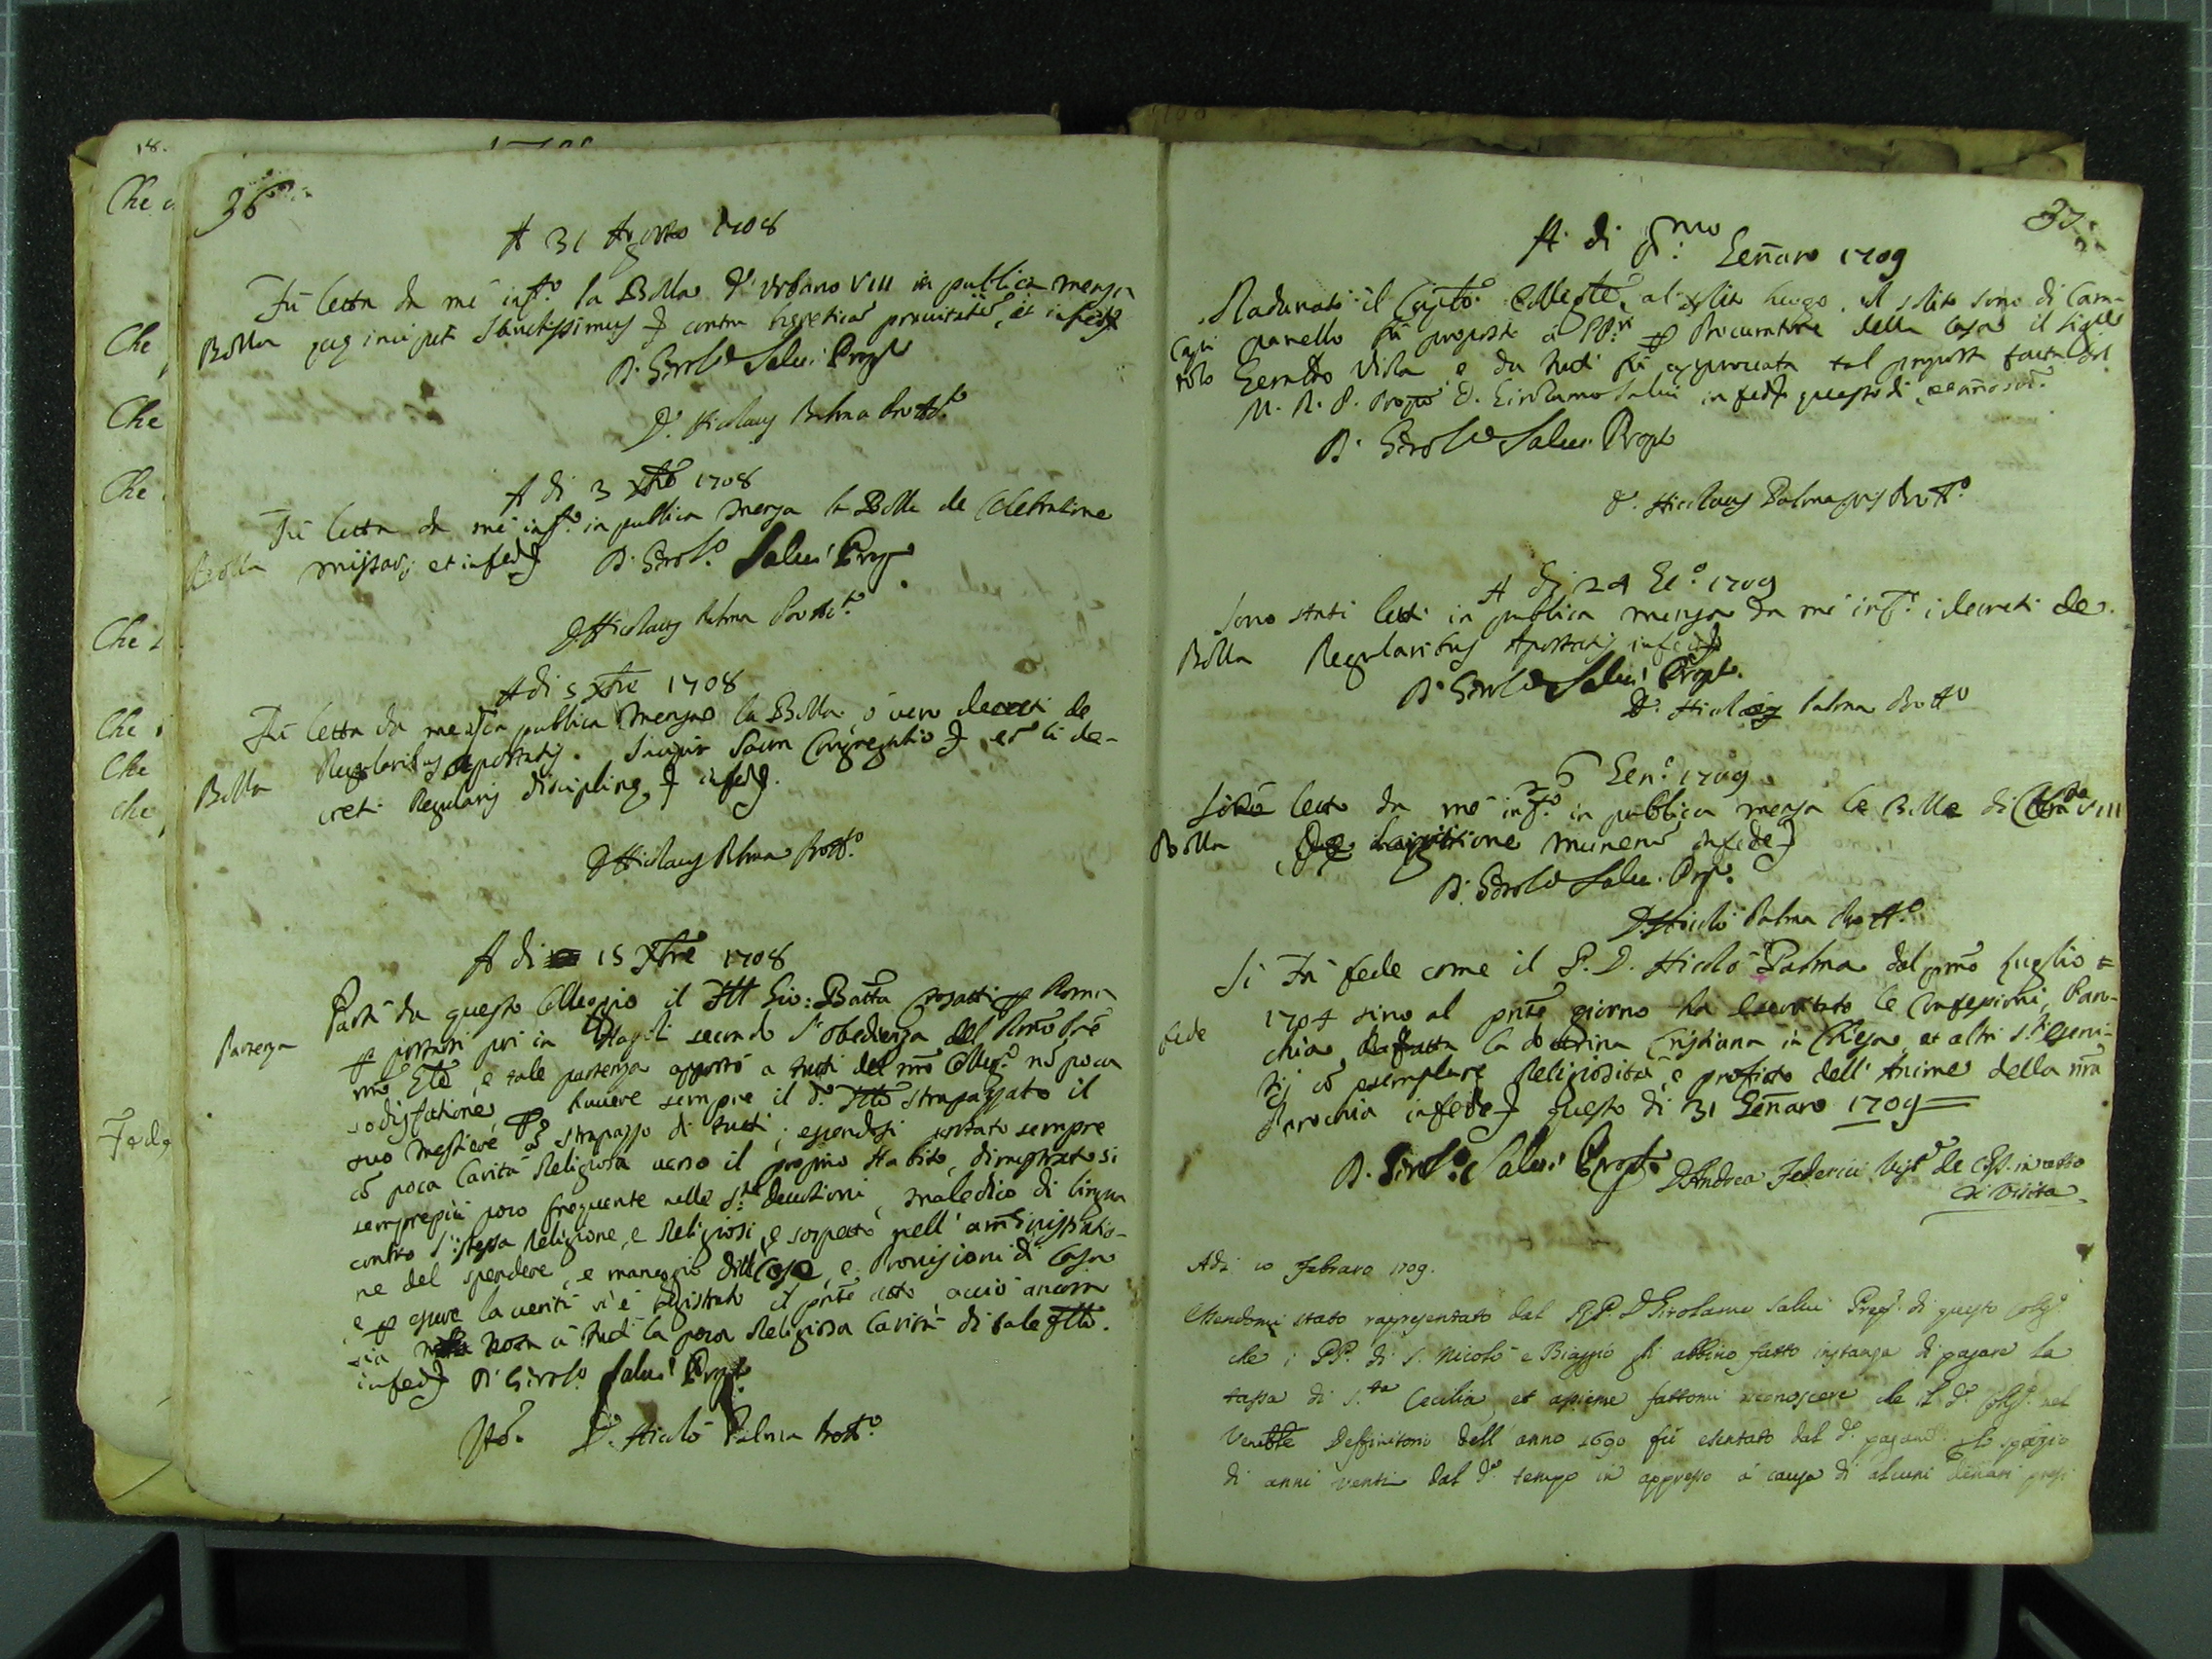 36
A 31 Agosto 1708
Fù letta da mè inf.o la Bolla d'Urbano VIII in publica mensa
Bolla
quae incipit Sanctissimus contra hereticam pravitatem, et in fede
D. Girol.o Salvi Prep.to
D. Nicolaus Palma Pro Att.o
A di 3 Xbre 1708
Fù letta da mè inf.o in publica mensa la Bolla de Celebratione
Bolla
missarum et in fede D. Girol.o Salvi Prep.
D. Nicolaus Palma Pro Att.o
A di 5 Xbre 1708
Fù letta da me in publica mensa la Bolla ò vero decreti de
Regularibus Apostatis. Incipit Sacra Congregatio et li de-
Bolla
creti Regularis disciplinae in fede.
D. Nicolaus Palma Pro Att.o
A di 15 Xbre 1708
Partì da questo Colleggio il Fratt Gio: Batta Rosatti per Roma
Partenza
per portarsi poi in Napoli secondo l'obedienza del Rmo Pre
nro Gle, e tale partenza apportò a tutti del nro Colleg.o nò poca
sodisfatione, per havere sempre il d.o Fratto strapazzato il
suo mestiere cò strapazzo di tutti; essendosi portato sempre
cò poca Carità Religiosa verso il proprio Habito, dimostratosi
semprepiù poco frequente nelle S.te devotioni, maledico di lingua
contro l'istessa Religione, e Religiosi, e sospetto nell' amministratio-
ne del spendere, e maneggio delle Cose, e Provisioni di Casa
e per essere la verità si è registrato il pnte atto acciò ancora
sia nota à tutti la poca Religiosa Carità di tale Fratto.
in fede D. Girol.o Salvi Prep.to
D. Nicolò Palma Pro Att.o
37
A di p.mo Gennaro 1709
Radunato il Capito Collegte, al solito luogo, al solito sono di Cam-
Capi
panello fù proposto à PP.ri per Procuratore della Casa il Sig.re
tolo
Geraldo Viola, e da tutti fù approvata tal proposta fatta dal
M. R. P. Propto D. Girolamo Salvi in fede questo dì, et anno sud.o
D. Girol.o Salvi Prep.to
D. Nicolaus Palma Pro Att.o
A di 24 Ge.o 1709
Sono stati letti in publica mensa da mè inf.o i decreti de
Bolla
Regularibus Apostatis in fede
D. Girol.o Salvi Prep.to
D. Nicolaus Palma Pro Att.o
26 Gen.o 1709
letto da mè inf.o in publica mensa le Bolle di VIII
Bolla
De largitione munerum in fede
D. Girol.o Salvi Prep.o
D. Nicolò Palma Pro Att.o
Si Fà fede come il P. D. Nicolò Palma dal pmo luglio
1704 sino al pnte giorno ha esercitato le Confessioni, Paro-
fede
chia, Ha fatta la dottrina Cristiana in Chiesa, et altri S.ti eserci-
tij cò esemplare Religiosità, e profitto dell' Anime della nra
Parochia in fede questo di 31 Gennaro 1709
D. Girol.o Salvi Prep.to D. Andrea Federici in atto
di Visita
Adi 10 Febraro 1709.
Essendomi stato rapresentato dal R.P. D Girolamo Salvi Prep.o di questo Colg.o
che i PP. di S. Nicolò e Biaggio li abbino fatto instanza di pagare la
tassa di S.ta Cecilia, et assieme fattomi riconoscere che il d.o Colg.o nel
Venble Deffinitorio dell' anno 1690 fù esentato dal d.o pagam.to per lo spazio
di anni venti dal d.o tempo in appresso à causa di alcuni denari presi